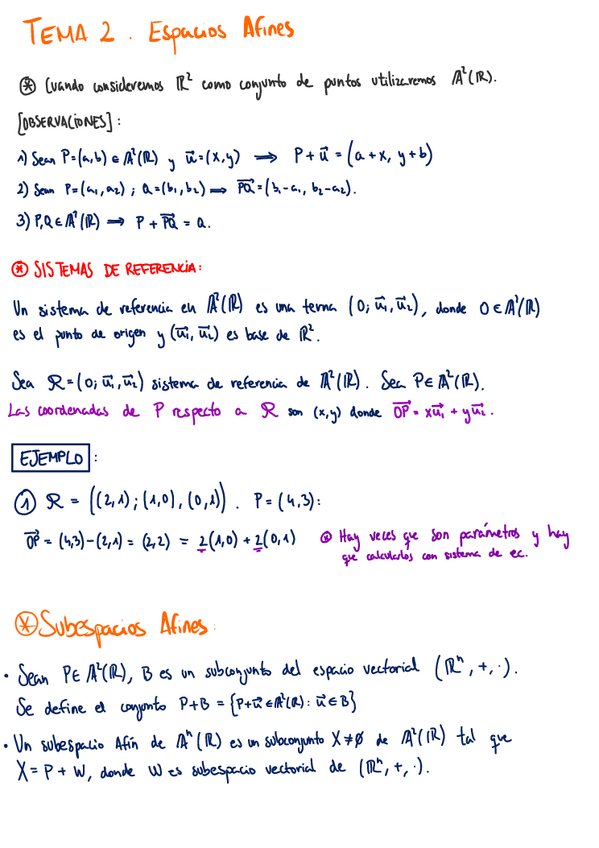 TEMA 2. Espacios Afines
⊛ Cuando consideremos ℝ² como conjunto de puntos utilizaremos 𝔸²(ℝ).
[OBSERVACIONES]:
1) Sean P=(a,b) ∈ 𝔸²(ℝ) y u⃗=(x,y) ⟹ P+u⃗ = (a+x, y+b)
2) Sean P=(a₁,a₂); Q=(b₁,b₂) ⟹ PQ⃗=(b₁-a₁, b₂-a₂).
3) P,Q ∈ 𝔸²(ℝ) ⟹ P + PQ⃗ = Q.
⊛ SISTEMAS DE REFERENCIA:
Un sistema de referencia en 𝔸²(ℝ) es una terna (O; u⃗₁, u⃗₂), donde O ∈ 𝔸²(ℝ)
es el punto de origen y (u⃗₁, u⃗₂) es base de ℝ².
Sea ℛ=(O; u⃗₁, u⃗₂) sistema de referencia de 𝔸²(ℝ). Sea P ∈ 𝔸²(ℝ).
Las coordenadas de P respecto a ℛ son (x,y) donde OP⃗ = xu⃗₁ + yu⃗₂.
EJEMPLO:
① ℛ = ((2,1); (1,0), (0,1)). P=(4,3):
OP⃗ = (4,3)-(2,1) = (2,2) = 2(1,0) + 2(0,1) ⊛ Hay veces que son parámetros y hay
que calcularlos con sistema de ec.
⊛ Subespacios Afines:
• Sean P ∈ 𝔸²(ℝ), B es un subconjunto del espacio vectorial (ℝⁿ, +, ·).
Se define el conjunto P+B = {P+u⃗ ∈ 𝔸²(ℝ): u⃗ ∈ B}
• Un subespacio Afín de 𝔸ⁿ(ℝ) es un subconjunto X≠∅ de 𝔸²(ℝ) tal que
X = P + W, donde W es subespacio vectorial de (ℝⁿ, +, ·).